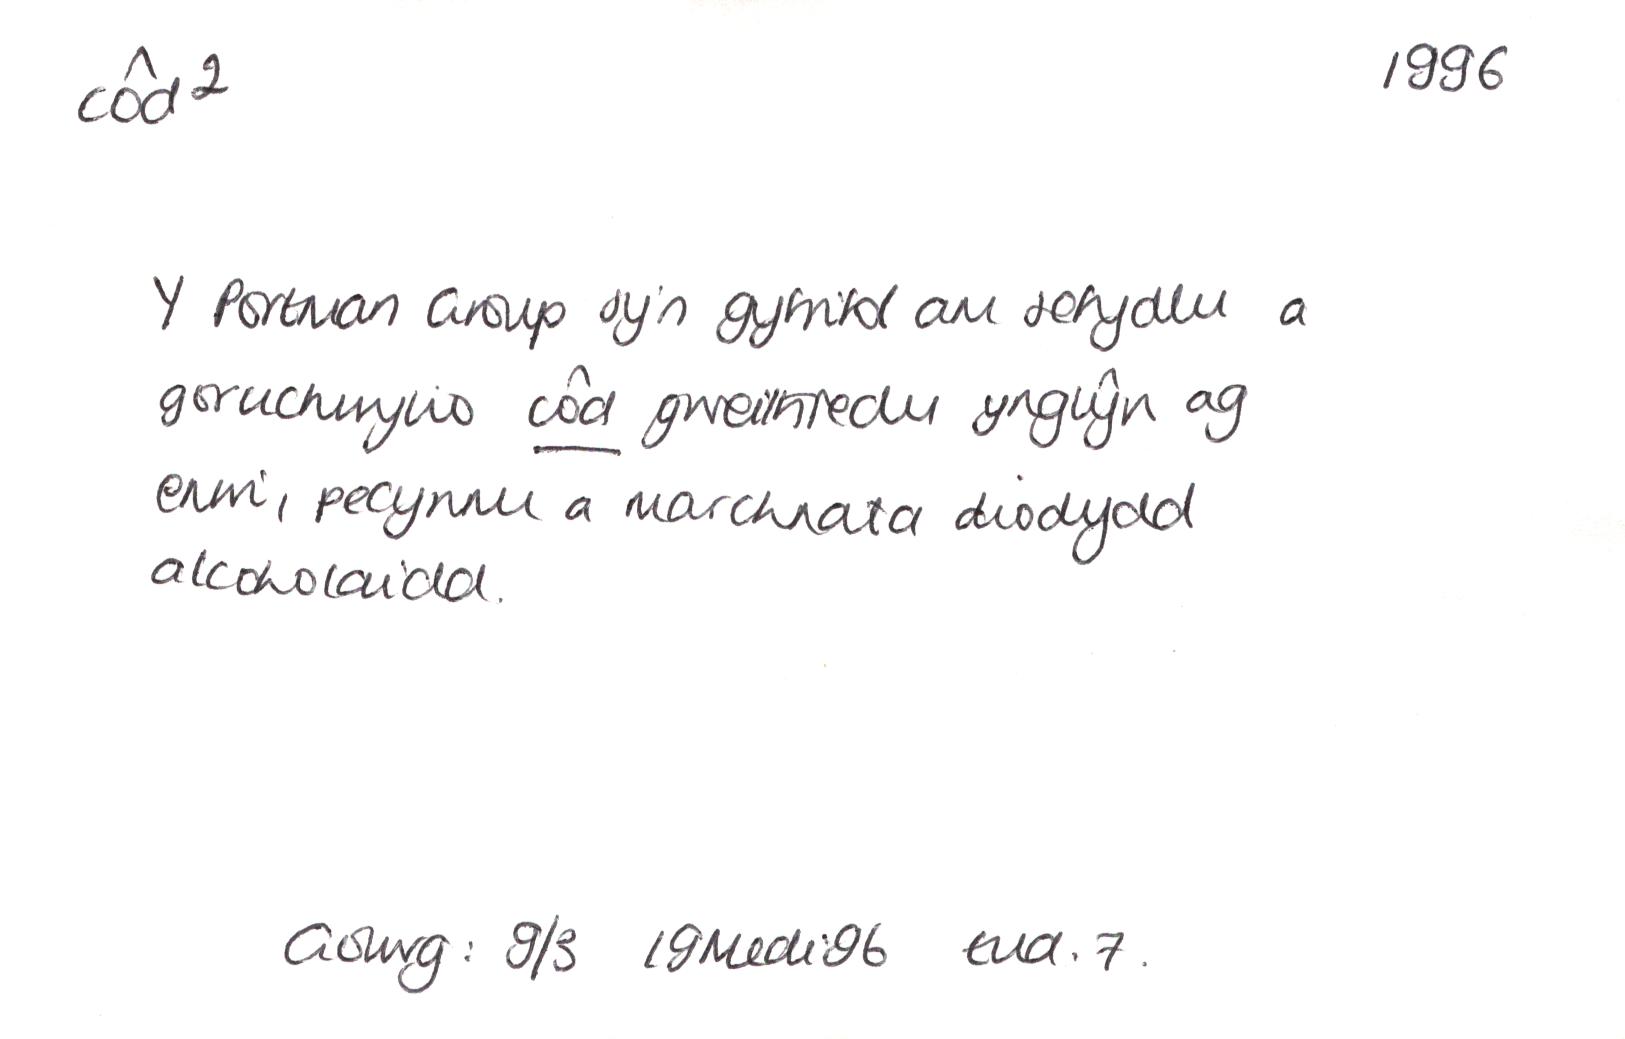 côd 2 1996
Y Portman Group sy'n gyfrifol am sefydlu a
goruchwylio côd gweithredu ynglŷn ag
enwi, pecynnu a marchnata diodydd
alcoholaidd.
Golwg: 9/3 19 Medi 96 tud. 7.